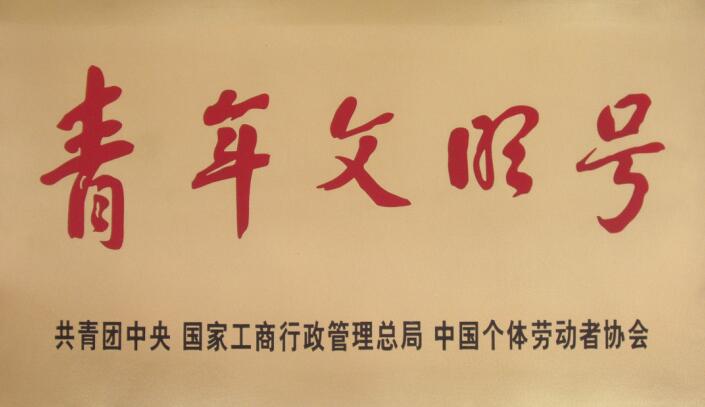 青年文明号
共青团中央 国家工商行政管理总局 中国个体劳动者协会